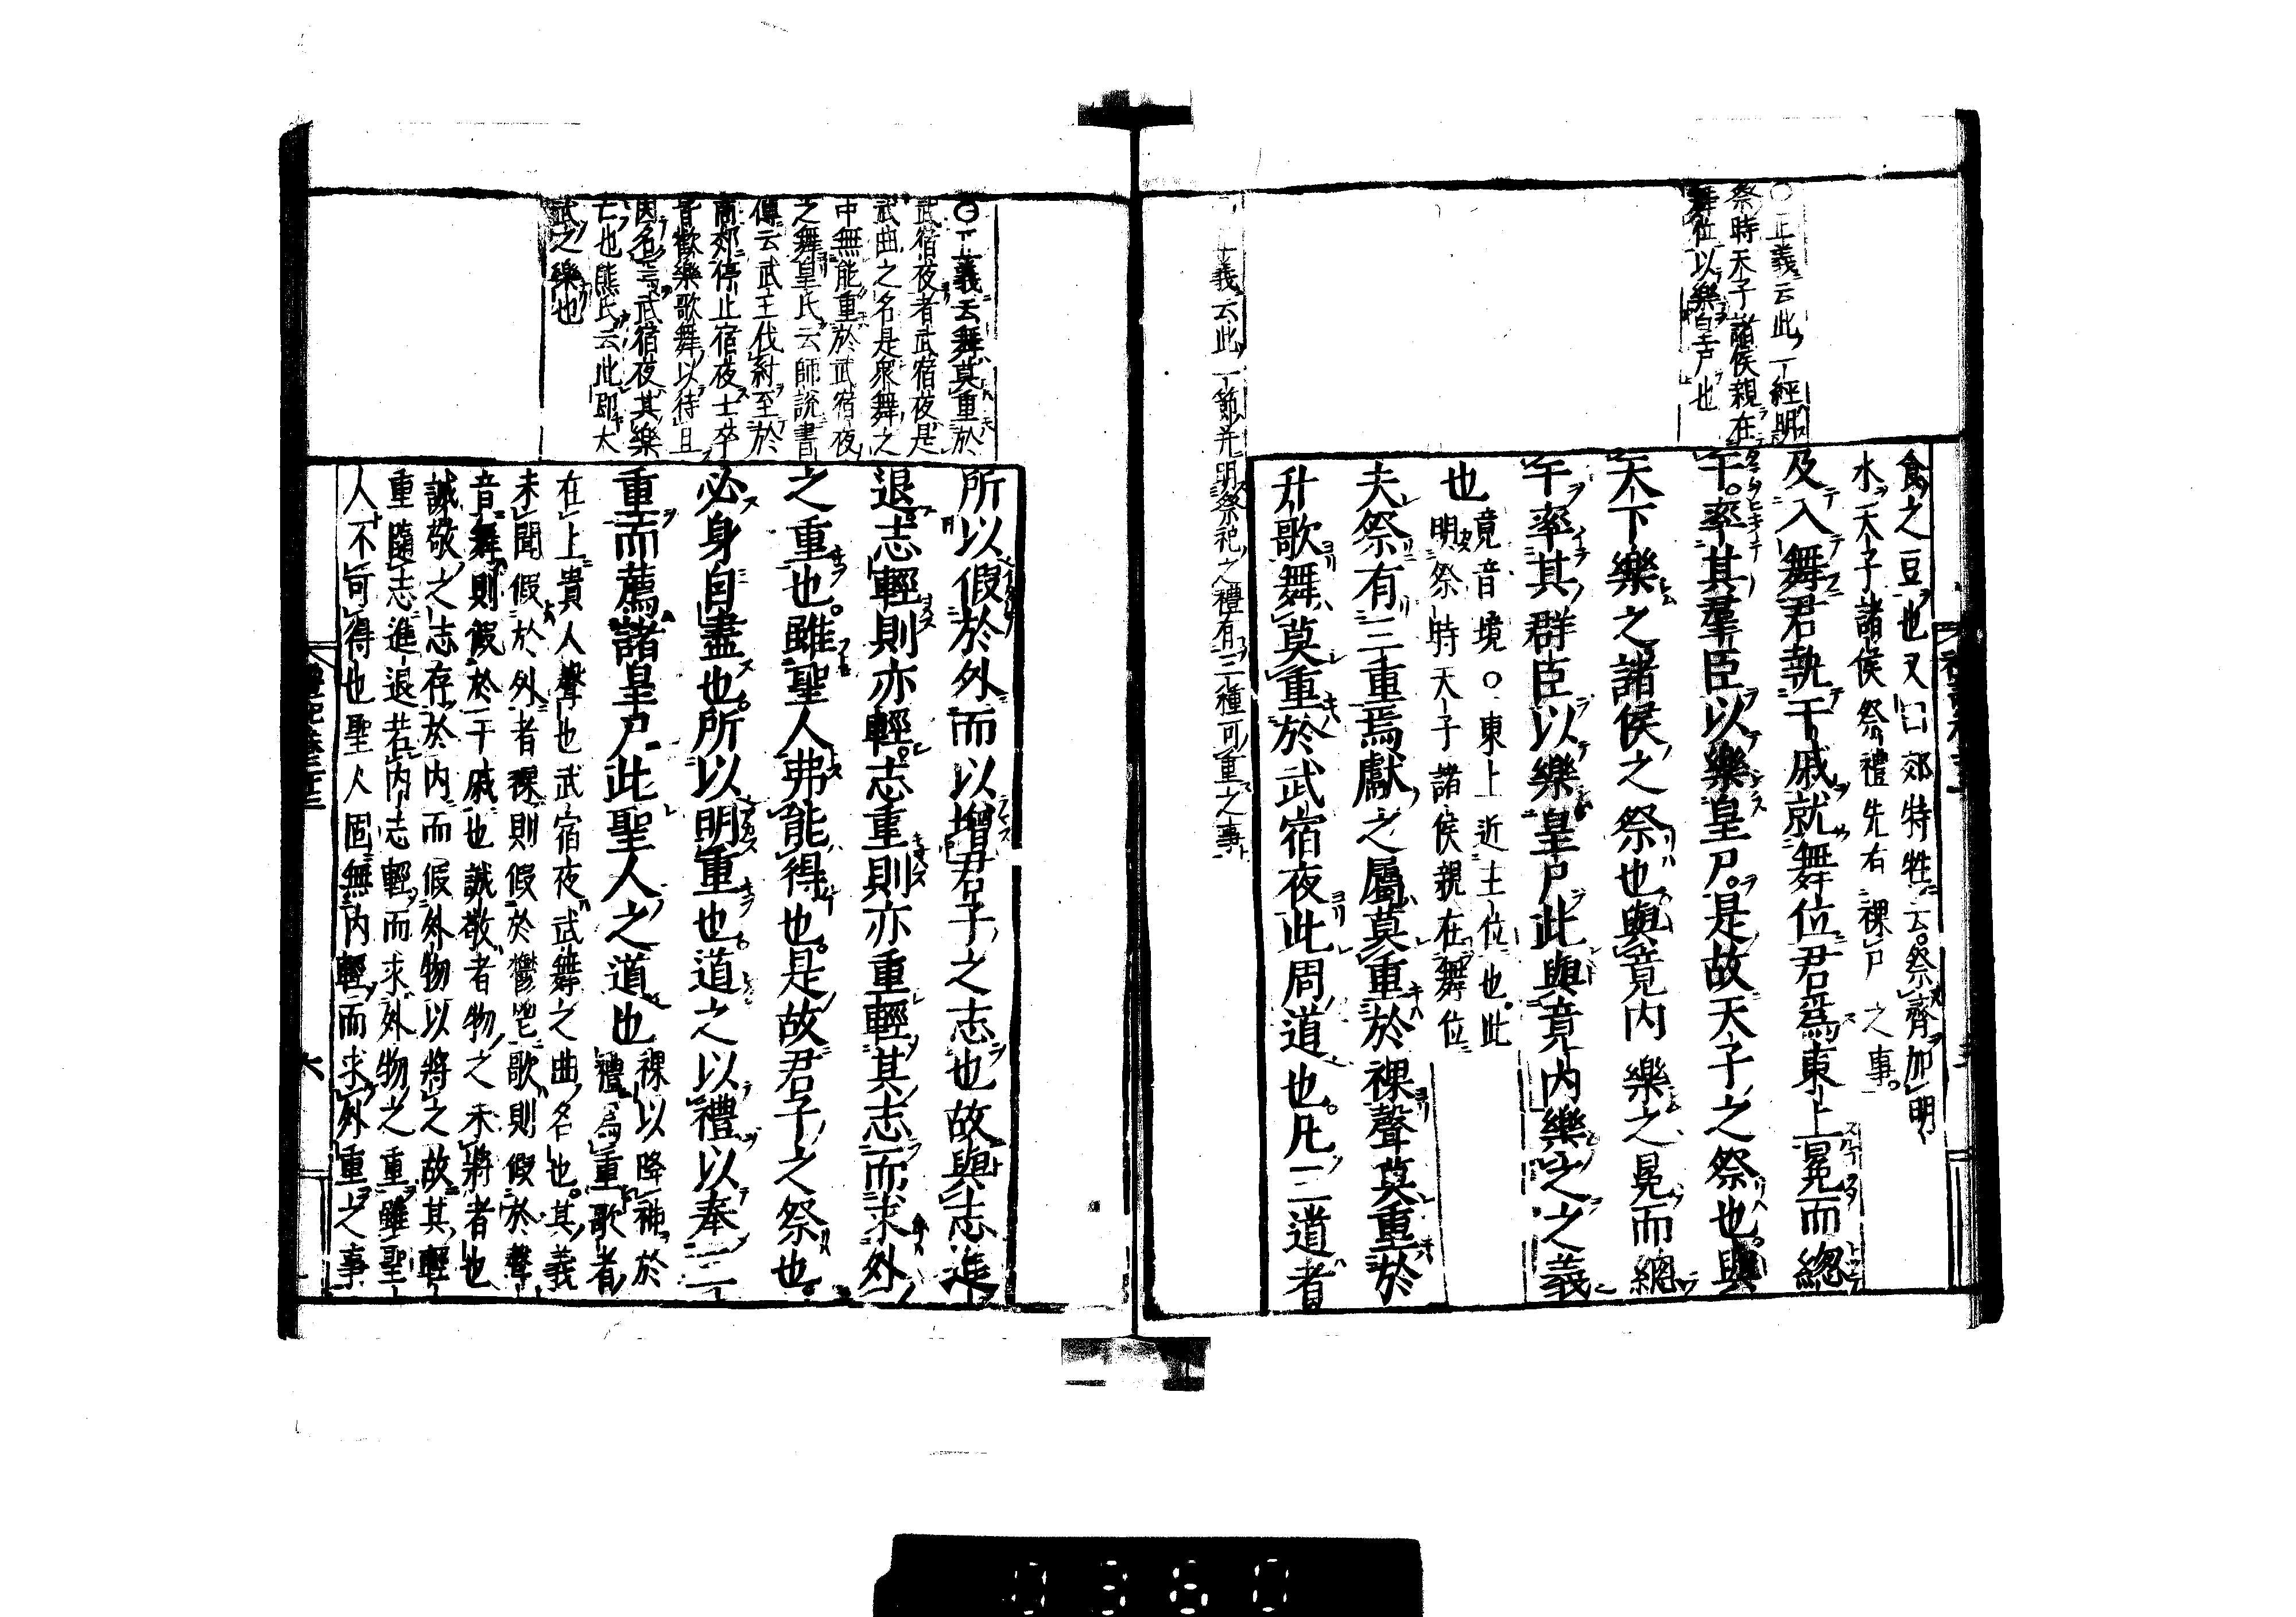 ○正義云此一經明
祭時天子諸侯親在
舞位以樂皇尸也
食之豆也又曰郊特牲云祭齊加明
水天子諸侯祭禮先有祼尸之事
及入舞君執干戚就舞位君爲東上冕而緫
干率其羣臣以樂皇尸是故天子之祭也與
天下樂之諸侯之祭也與竟内樂之冕而緫
干率其群臣以樂皇尸此與竟内樂之之義
也
竟音境○東上近主位也此
明祭時天子諸侯親在舞位
夫祭有三重焉獻之屬莫重於祼聲莫重於
升歌舞莫重於武宿夜此周道也凡三道者
義云此一節并明祭祀之禮有三種可重之事
○正義云舞莫重於
武宿夜者武宿夜是
武曲之名是衆舞之
中無能重於武宿夜
之舞皇氏云師說書
傳云武王伐紂至於
商郊停止宿夜士卒
皆歡樂歌舞以待旦
因名云武宿夜其樂
亡也熊氏云此即大
武之樂也
所以假於外而以增君子之志也故與志進
退志輕則亦輕志重則亦重輕其志而求外
之重也雖聖人弗能得也是故君子之祭也
必身自盡也所以明重也道之以禮以奉三
重而薦諸皇尸此聖人之道也
祼以降神於
禮爲重歌者
在上貴人聲也武宿夜武舞之曲名也其義
未聞假於外者祼則假於鬱鬯歌則假於聲
音舞則假於干戚也誠敬者物之未將者也
誠敬之志存於内而假外物以將之故其輕
重隨志進退若内志輕而求外物之重雖聖
人不可得也聖人固無内輕而求外重之事
六
0360